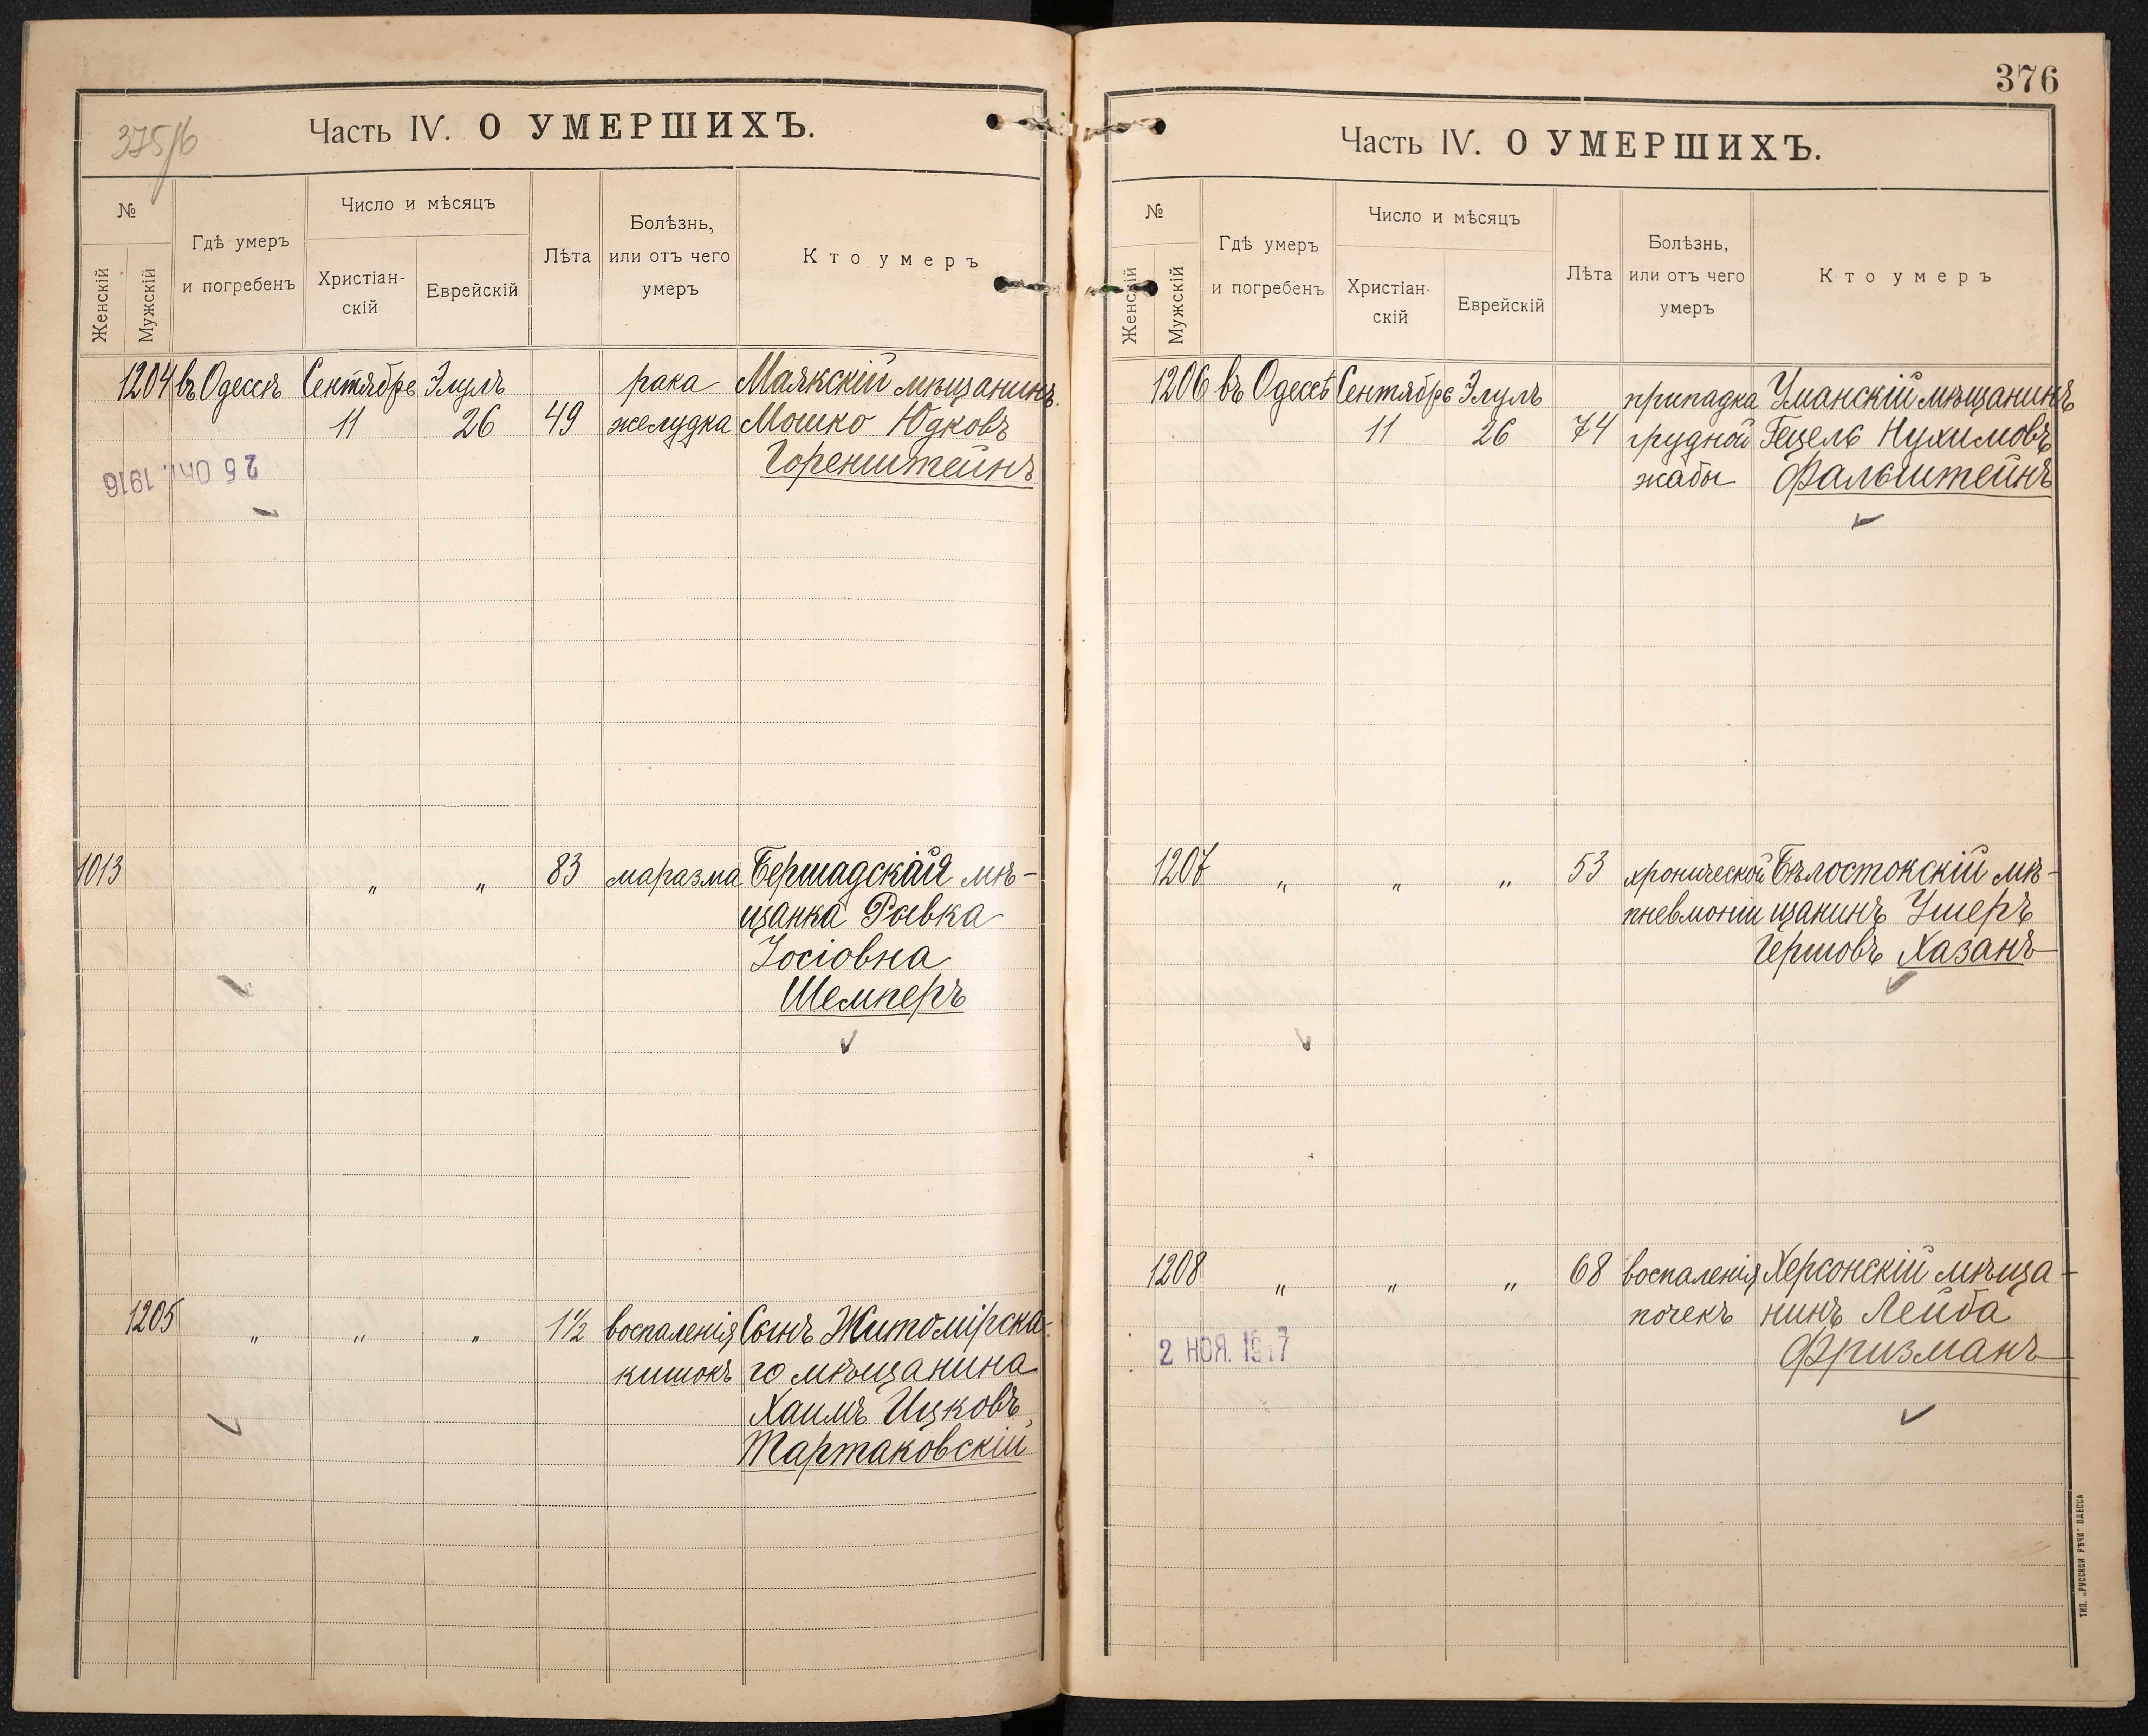 375/6
Часть IV. О УМЕРШИХЪ.
№
Женскій
Мужскій
Гдѣ умеръ
и погребенъ
Число и мѣсяцъ
Христіан-
скій
Еврейскій
Лѣта
Болѣзнь,
или отъ чего
умеръ
Кто умеръ
1204 въ Одессѣ Сентября Элулъ рака Маякскій мѣщанинъ
11 26 49 желудка Мошко Юдковъ
Горенштейнъ
25 Окт. 1916
1013 „ „ 83 маразма Бершадская мѣ-
щанка Ривка
Іосіовна
Шемперъ
1205 „ „ „ 1½ воспаленія Сынъ Житомірска-
кишокъ го мѣщанина
Хаимъ Ицковъ
Тартаковскій
376
Часть IV. О УМЕРШИХЪ.
№
Женскій
Мужскій
Гдѣ умеръ
и погребенъ
Число и мѣсяцъ
Христіан-
скій
Еврейскій
Лѣта
Болѣзнь,
или отъ чего
умеръ
Кто умеръ
1206 въ Одессѣ Сентября Элулъ припадка Уманскій мѣщанинъ
11 26 74 грудной Гецель Нухимовъ
жабы Фальштейнъ
1207 „ „ „ 53 хронической Бѣлостокскій мѣ-
пневмоніи щанинъ Ушеръ
Гершовъ Хазанъ
1208 „ „ „ 68 воспаленія Херсонскій мѣща-
почекъ нинъ Лейба
Фризманъ
2 НОЯ. 1917
ТИП. „РУССКОЙ РѢЧИ“ ОДЕССА